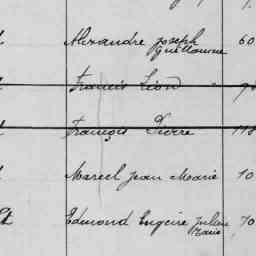 Alexandre Joseph Guillaume 60
Francis Léon
François Pierre 118
Marcel Jean Marie 10
Edmond Eugène Julien Marie 70